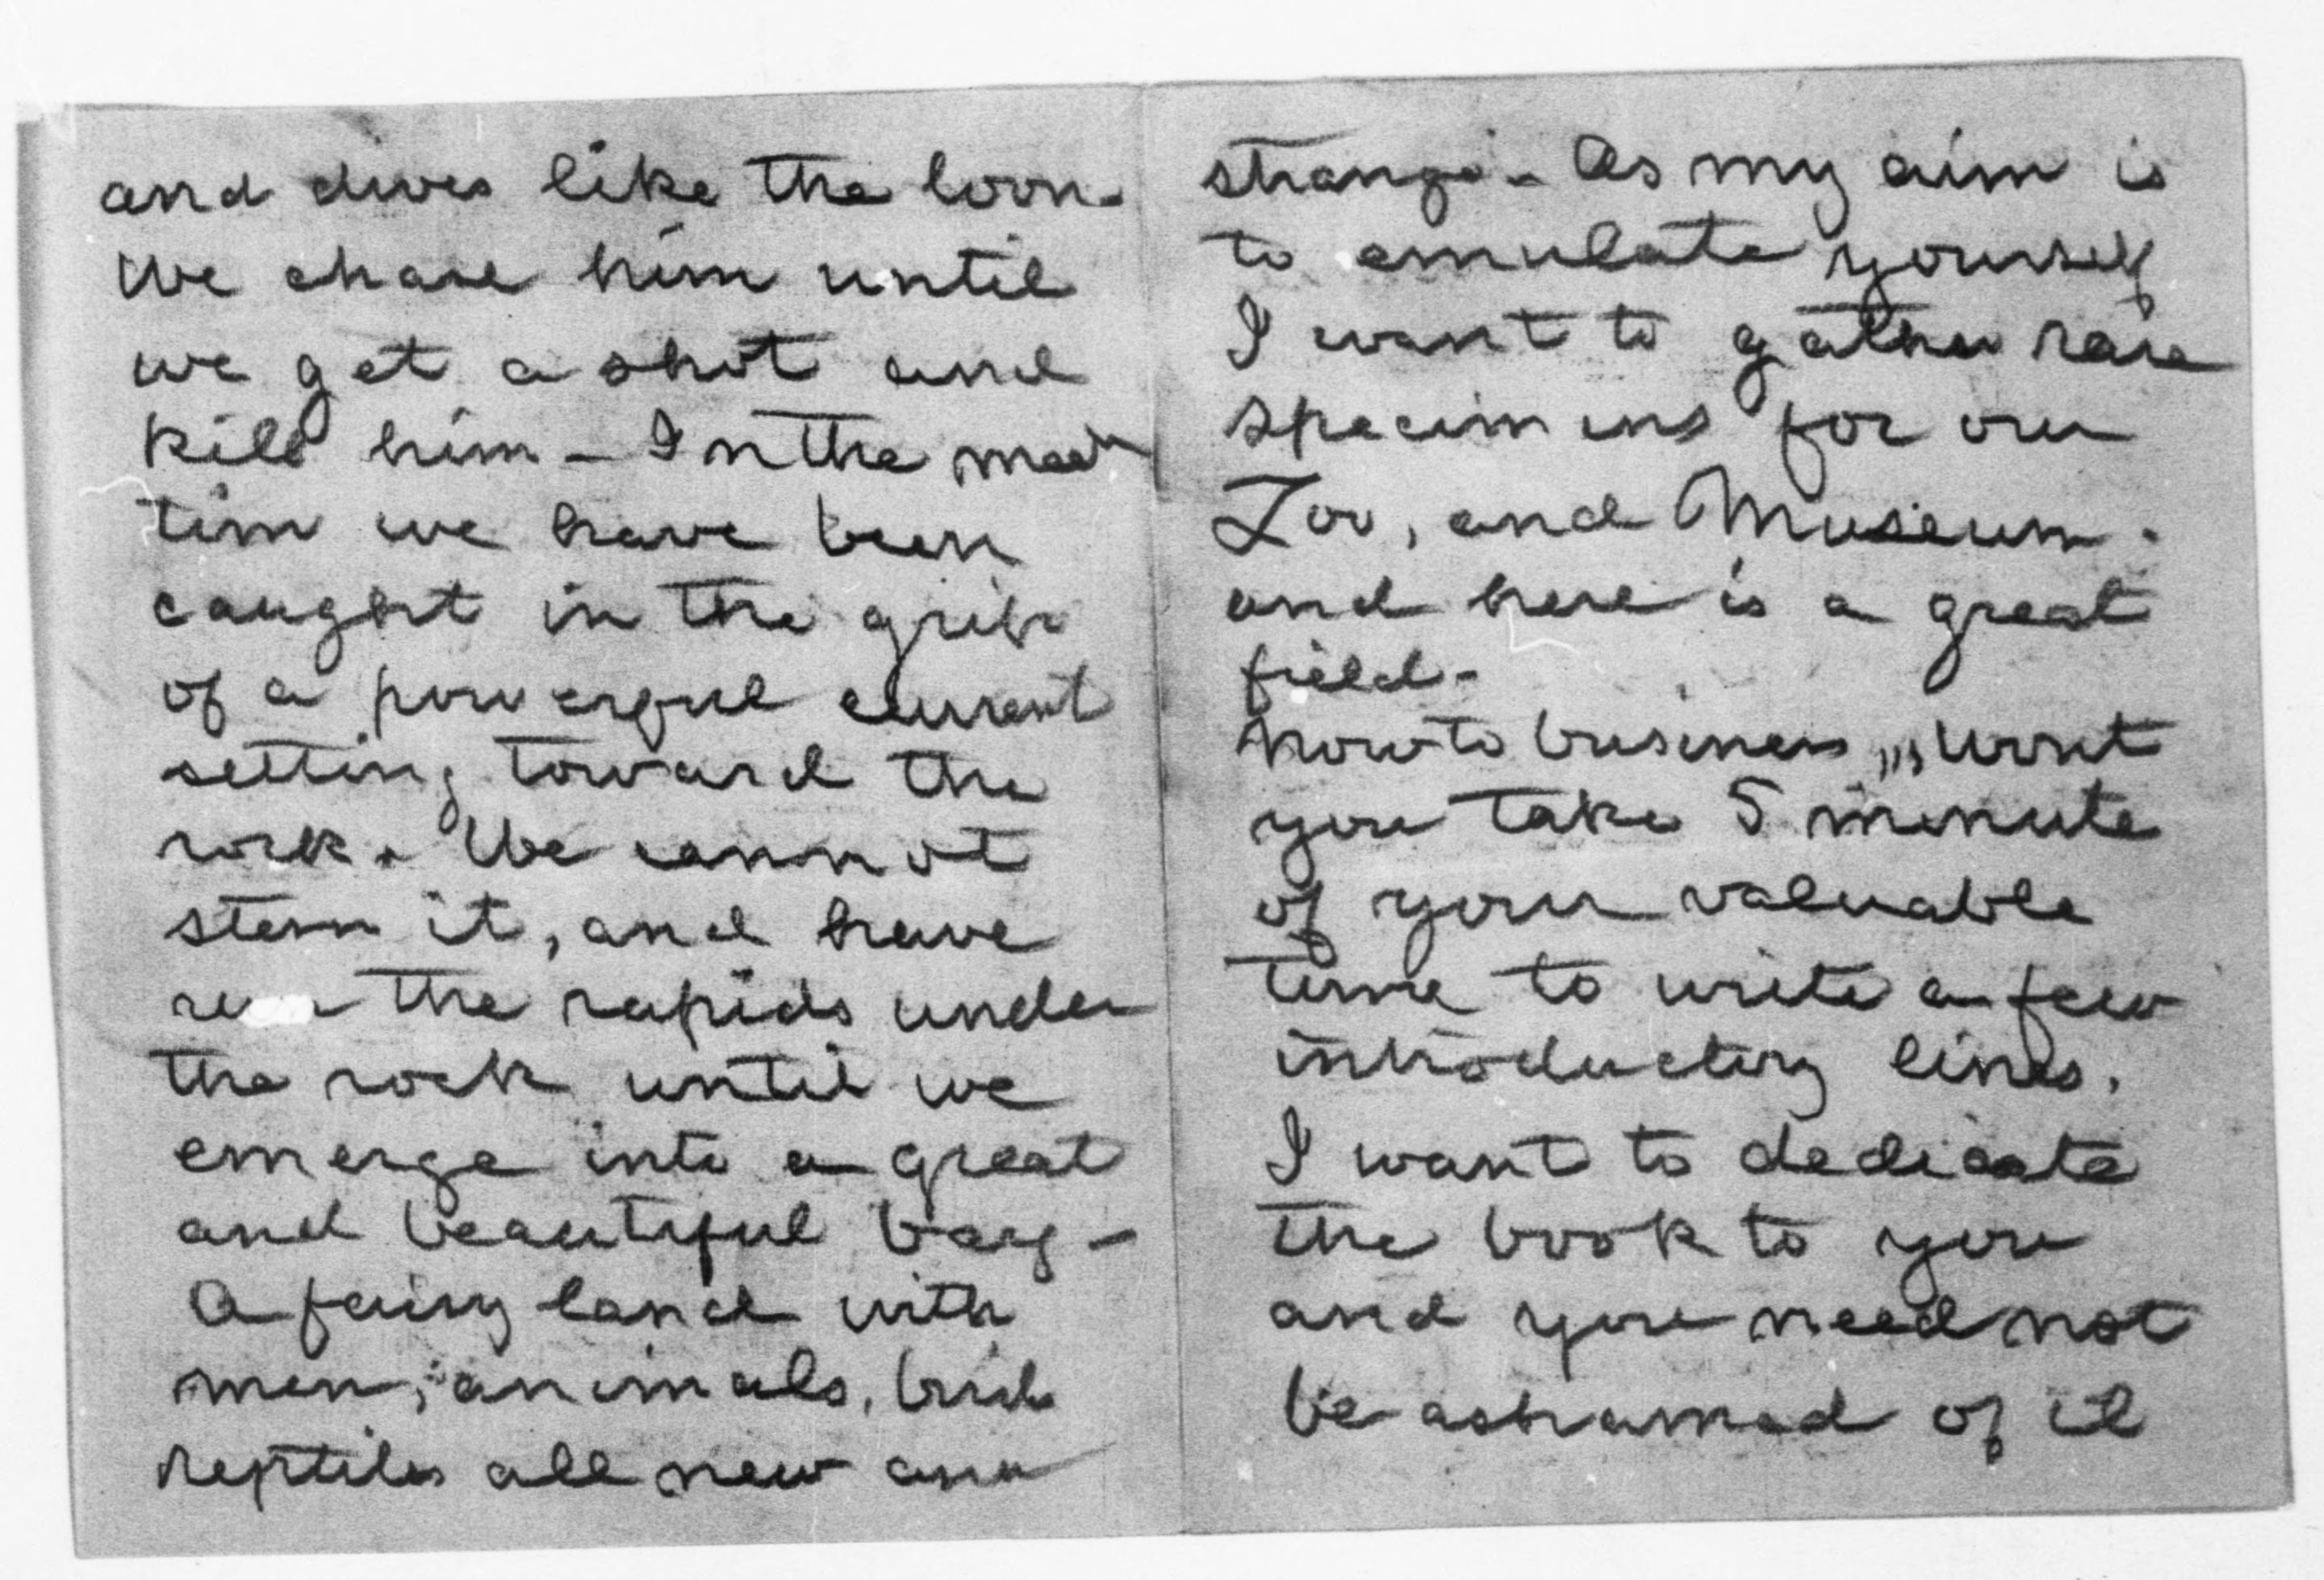 and dives like the loon.
We chase him until
we get a shot and
kill him – In the mean
tim we have been
caught in the grip
of a powerful current
setting toward the
rock. We cannot
stem it, and have
run the rapids under
the rock until we
emerge into a great
and beautiful bay –
A fairy land with
men, animals, birds
reptiles all new and
strange – As my aim is
to emulate yourself
I want to gather rare
specimins for our
Zoo, and Museum.
and here is a great
field –
Now to business ,,, Wont
you take 5 minute
of your valuable
time to write a few
introductory lines.
I want to dedicate
the book to you
and you need not
be ashamed of it